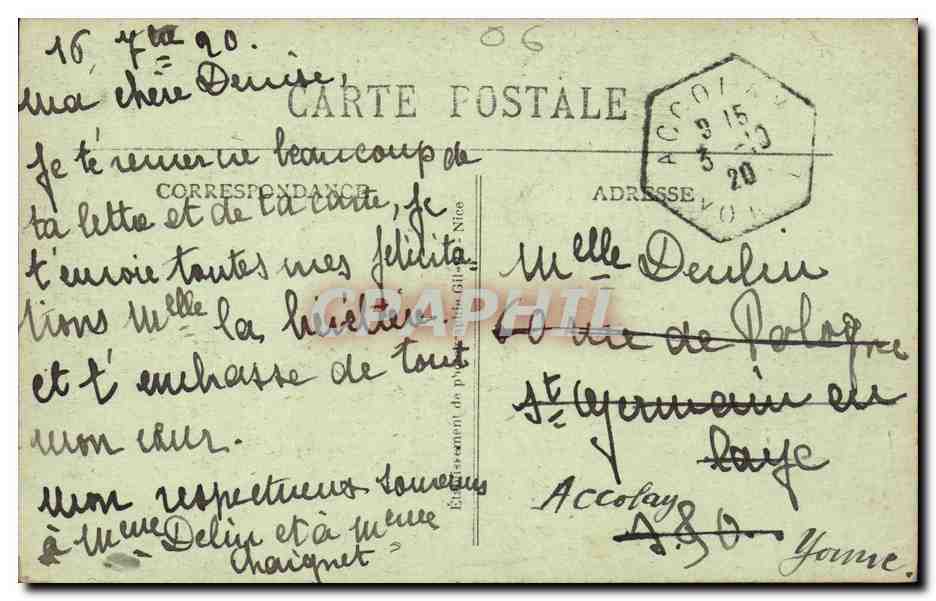 16 7bre 20.
06
ma chère Denise,
CARTE POSTALE
ACCOLAY
9 15
5 -10
20
YO
je te remercie beaucoup de
CORRESPONDANCE
ADRESSE
ta lettre et de ta carte, je
t'envoie toutes mes félicita-
tions Melle la
et t'embrasse de tout
mon cœur.
mon respectueux souvenir
à Mme Delin et à Mme
Chaignet
Melle Deulin
rue de Pologne
St Germain en
Laye
Accolay
S.&O.
Yonne.
Etablissement de Nice
GRAPHIL